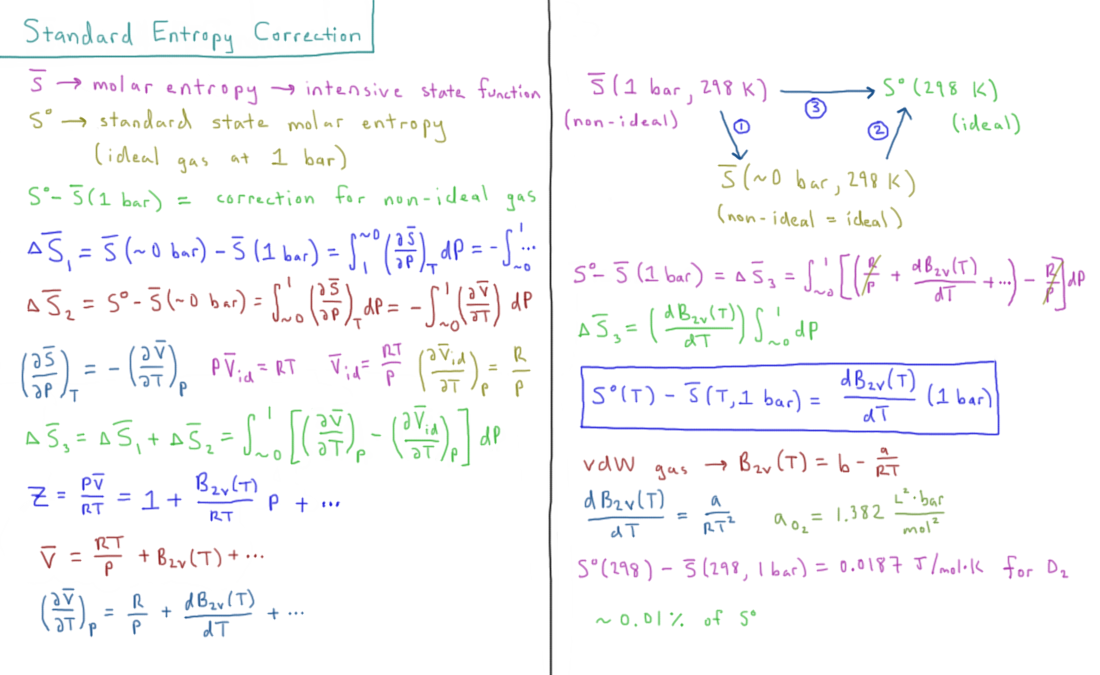 Standard Entropy Correction
S̅ → molar entropy → intensive state function
S° → standard state molar entropy
(ideal gas at 1 bar)
S° - S̅(1 bar) = correction for non-ideal gas
ΔS̅₁ = S̅(~0 bar) - S̅(1 bar) = ∫₁^~0 (∂S̅/∂P)_T dP = -∫_~0^1 ...
ΔS̅₂ = S° - S̅(~0 bar) = ∫_~0^1 (∂S̅/∂P)_T dP = -∫_~0^1 (∂V̅/∂T) dP
(∂S̅/∂P)_T = -(∂V̅/∂T)_P PV̅_id = RT V̅_id = RT/P (∂V̅_id/∂T)_P = R/P
ΔS̅₃ = ΔS̅₁ + ΔS̅₂ = ∫_~0^1 [(∂V̅/∂T)_P - (∂V̅_id/∂T)_P] dP
Z = PV̅/RT = 1 + B₂ᵥ(T)/RT P + ...
V̅ = RT/P + B₂ᵥ(T) + ...
(∂V̅/∂T)_P = R/P + dB₂ᵥ(T)/dT + ...
S̅(1 bar, 298 K) → S°(298 K)
(non-ideal) ① ③ ② (ideal)
S̅(~0 bar, 298 K)
(non-ideal = ideal)
S° - S̅(1 bar) = ΔS̅₃ = ∫_~0^1 [(R/P + dB₂ᵥ(T)/dT + ...) - R/P] dP
ΔS̅₃ = (dB₂ᵥ(T)/dT) ∫_~0^1 dP
S°(T) - S̅(T, 1 bar) = dB₂ᵥ(T)/dT (1 bar)
vdW gas → B₂ᵥ(T) = b - a/RT
dB₂ᵥ(T)/dT = a/RT² a_O₂ = 1.382 L²·bar/mol²
S°(298) - S̅(298, 1 bar) = 0.0187 J/mol·K for O₂
~0.01% of S°